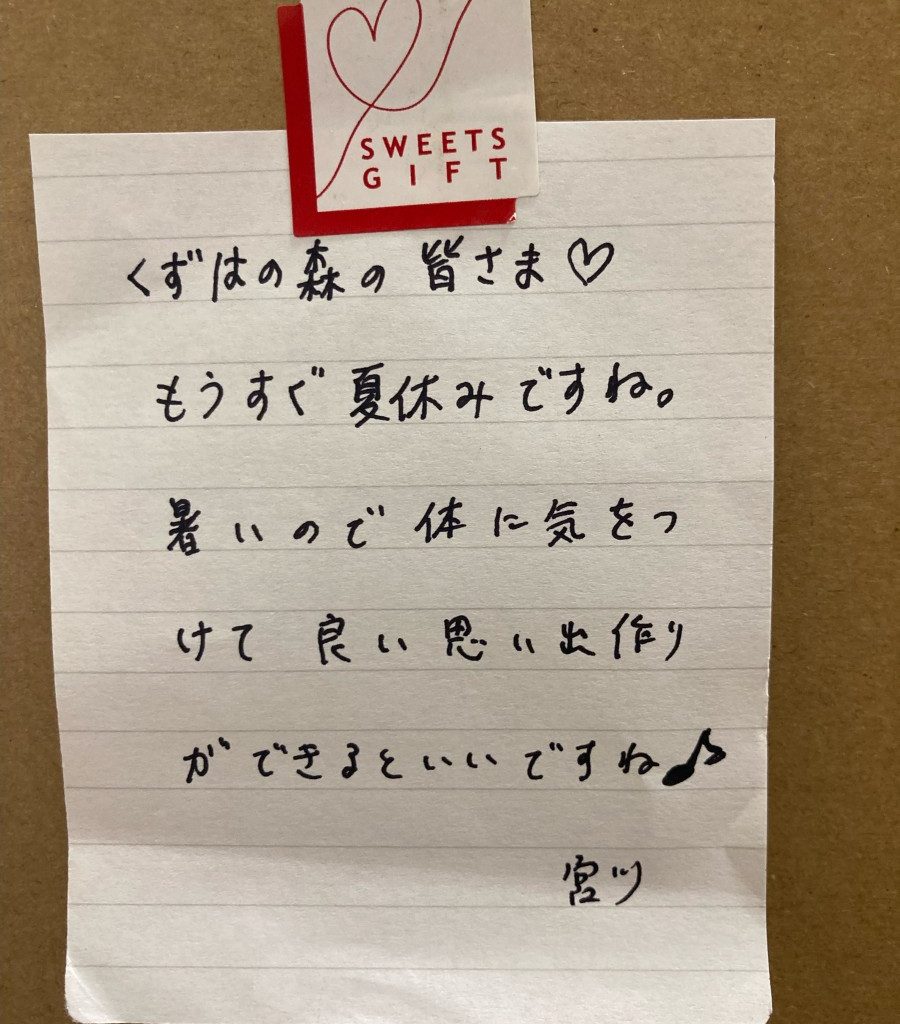 SWEETS
GIFT
くずはの森の皆さま♡
もうすぐ夏休みですね。
暑いので体に気をつ
けて良い思い出作り
ができるといいですね♪
宮川